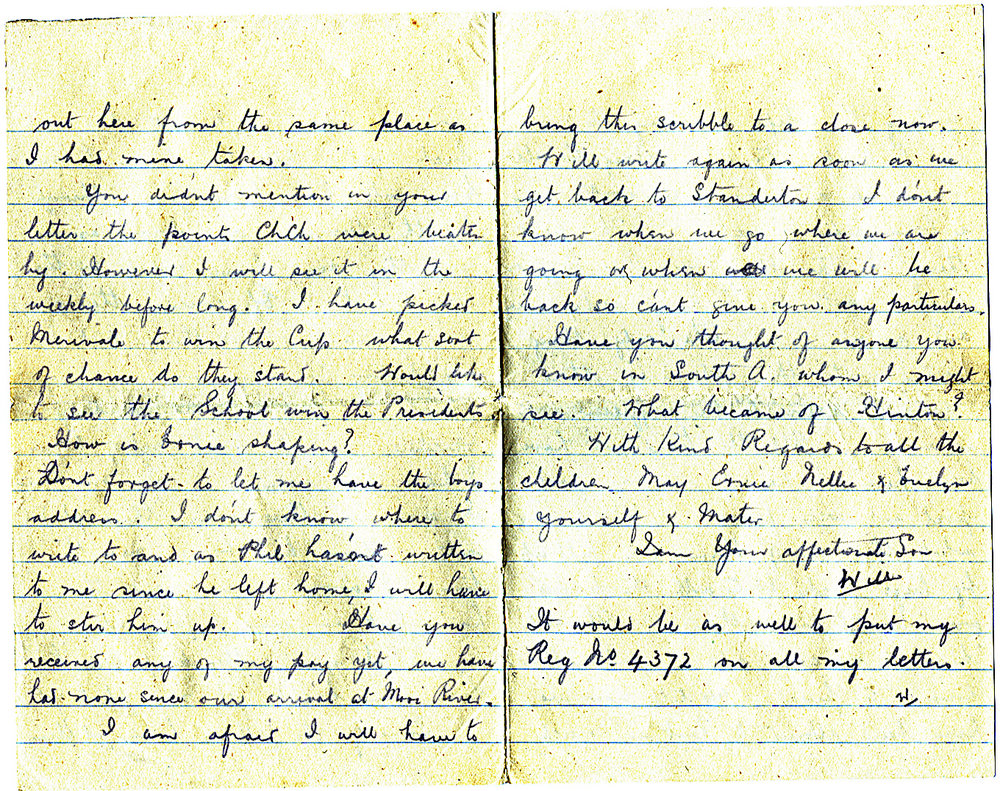 out here from the same place as
I had mine taken.
You didn't mention in your
letter the points ChCh were beaten
by. However I will see it in the
weekly before long. I have picked
Merivale to win the Cup what sort
of chance do they stand. Would like
to see the School win the Presidents
How is Ernie shaping?
Don't forget to let me have the boys
address. I don't know where to
write to and as Phil hasn't written
to me since he left home, I will have
to stir him up. Have you
received any of my pay yet, we have
had none since our arrival at Mooi River.
I am afraid I will have to
bring this scribble to a close now.
Will write again as soon as we
get back to Standerton I don't
know when we go where we are
going or when we will be
back so cant give you any particulars.
Have you thought of anyone you
know in South A. whom I might
see. What became of Hinton?
With Kind Regards to all the
children May Ernie Nellie & Evelyn
yourself & Mater
I am Your affectionate Son
Will
It would be as well to put my
Reg No 4372 on all my letters.
W